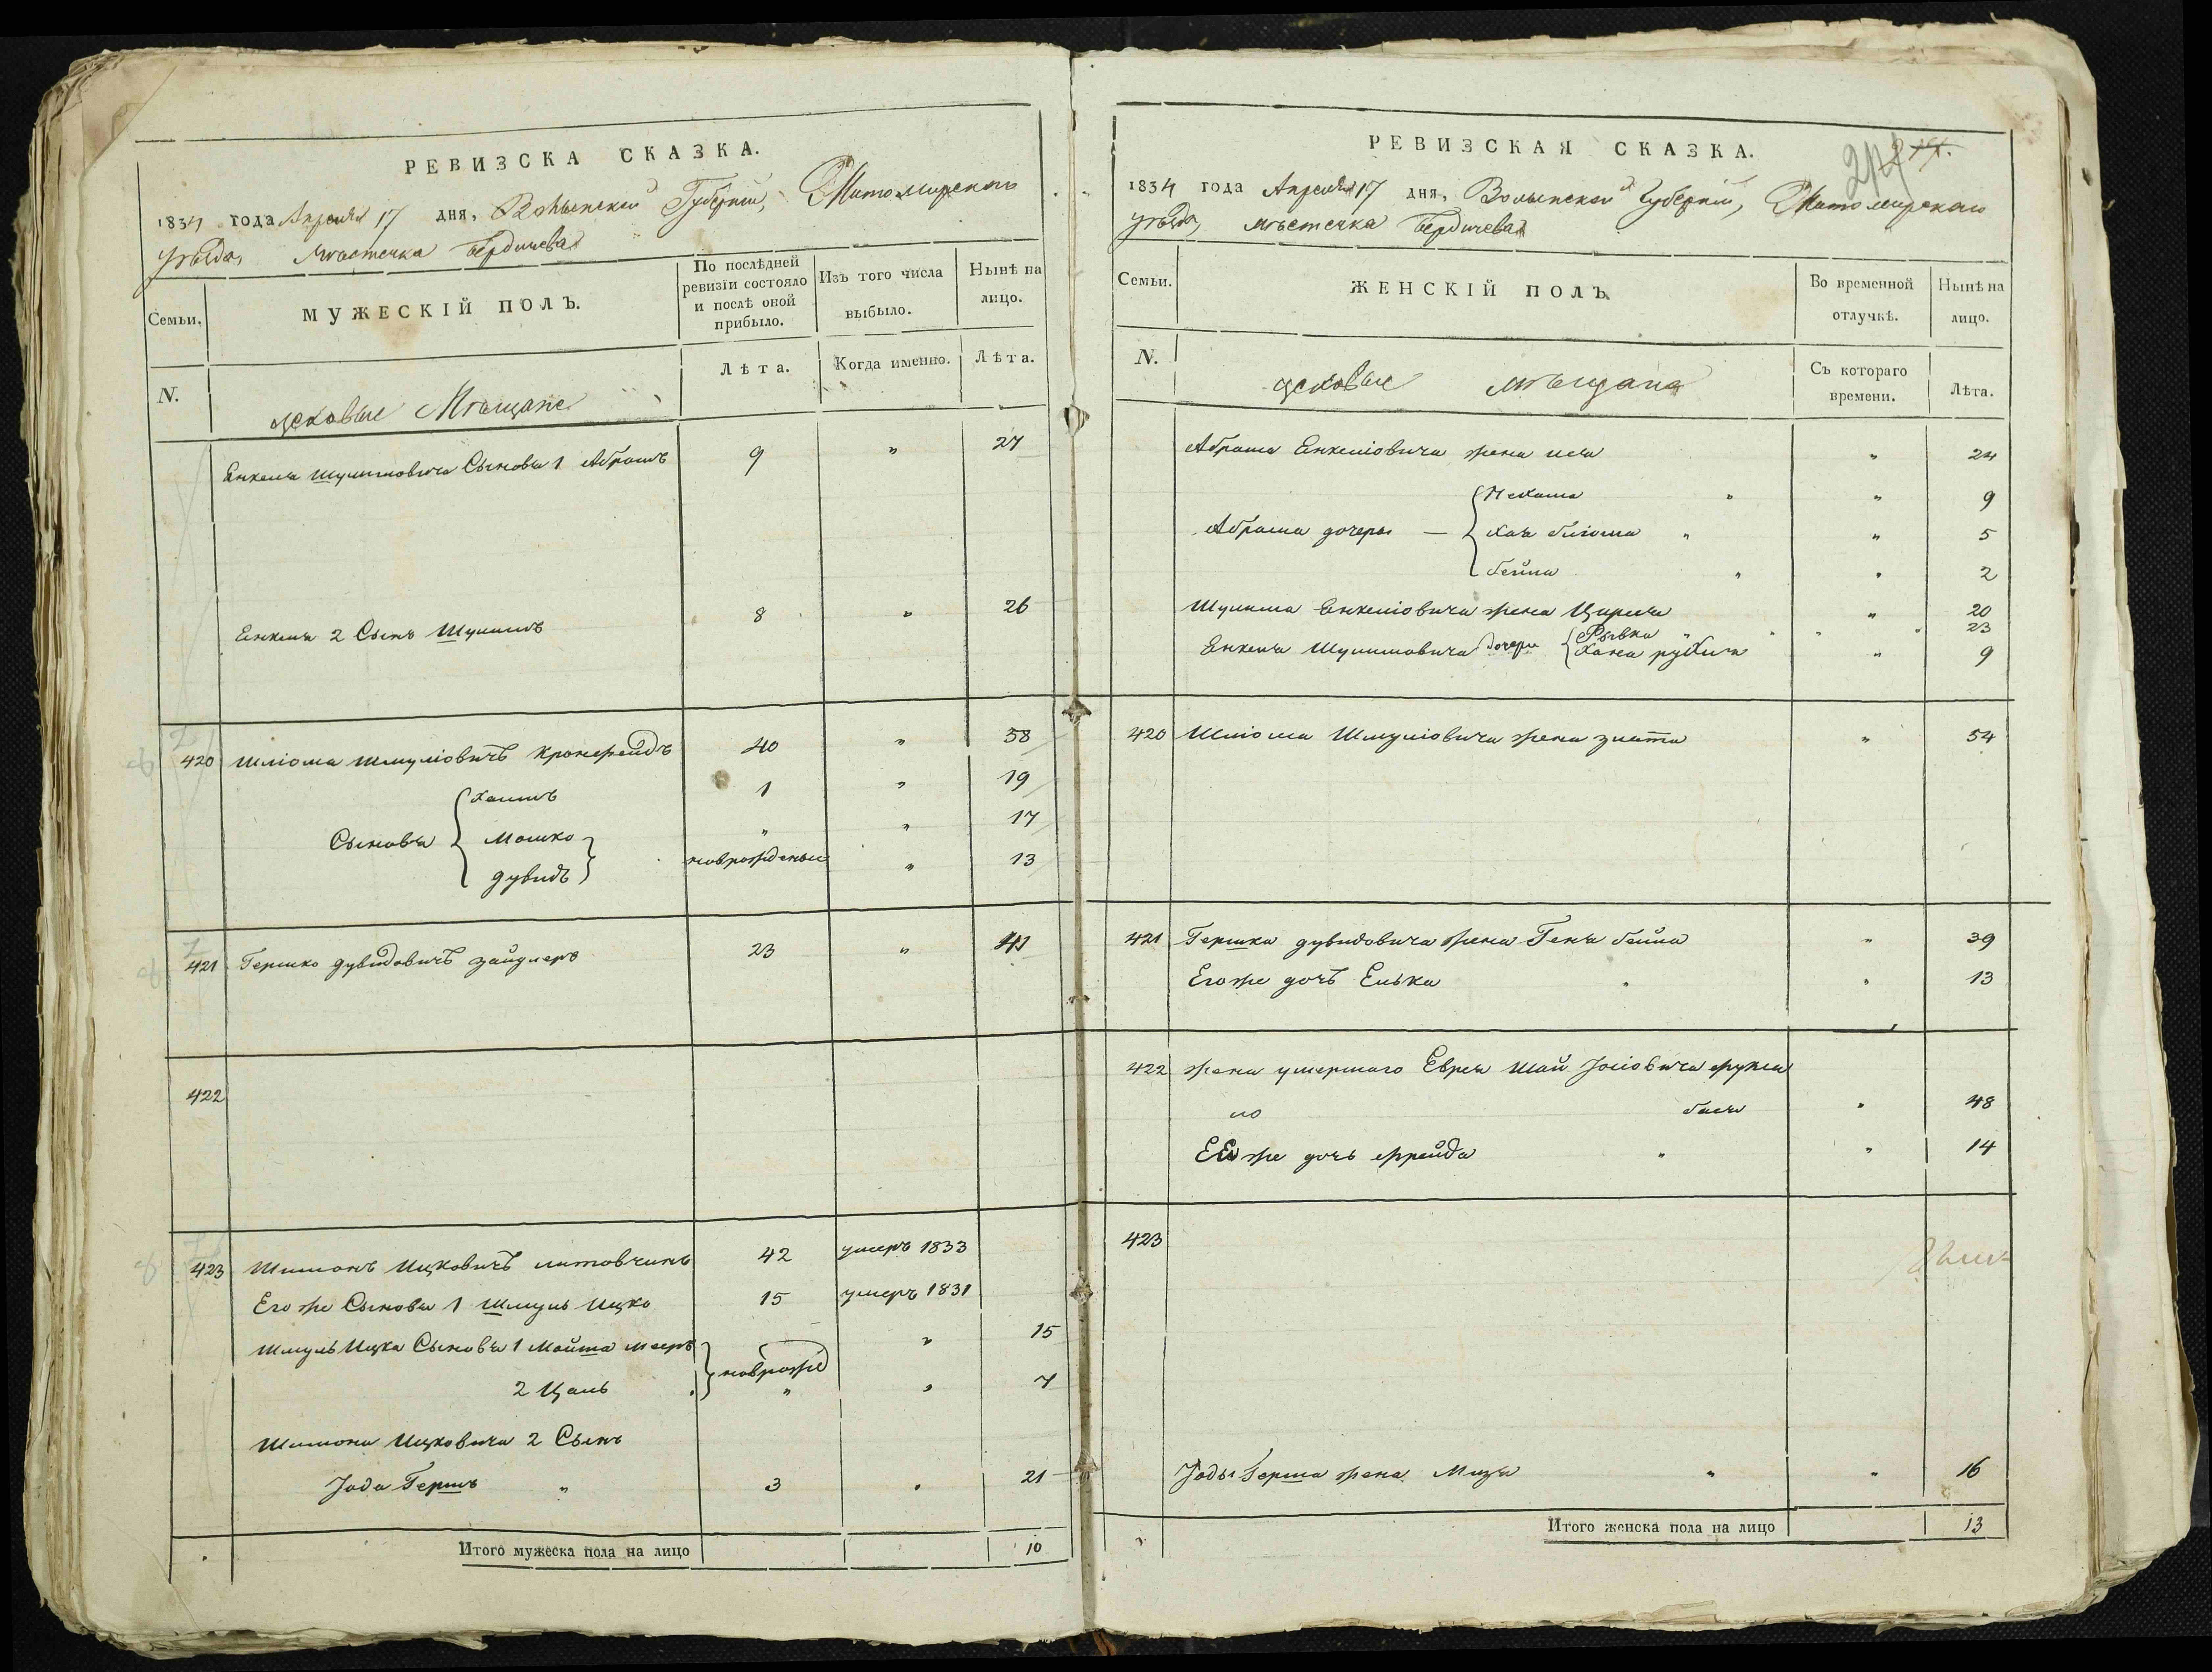 РЕВИЗСКА СКАЗКА.
1834 года Апреля 17 дня, Волынской Губернїи, Житомирскаго
уѣзда, мѣстечка Бердичева
Семьи. МУЖЕСКІЙ ПОЛЪ. По послѣдней ревизіи состояло и послѣ оной прибыло. Изъ того числа выбыло. Нынѣ на лицо.
N. Лѣта. Когда именно. Лѣта.
цеховые Мѣщане
Енкеля Шулимовича Сыновья 1 Абрамъ 9 " 27
Енкеля 2 Сынъ Шулимъ 8 " 26
420 Шліома Шмуліовичъ Кронфейдъ 40 " 58
Хаимъ 1 " 19
Сыновья Мошко " " 17
Дувидъ новрожденые " 13
421 Гершко Дувидовичъ Зайдлеръ 23 " 41
422
423 Шимонъ Ицковичъ литовчинъ 42 умеръ 1833
Его же Сыновья 1 Шмуль Ицко 15 умеръ 1831
Шмуль Ицка Сыновья 1 Мойша Мееръ новрожд " 15
2 Цаль " " 7
Шимона Ицковича 2 Сынъ
Іода Гершъ " 3 " 21
Итого мужеска пола на лицо 10
РЕВИЗСКАЯ СКАЗКА.
1834 года Апреля 17 дня, Волынской Губерніи, Житомирскаго
уѣзда, мѣстечка Бердичева
Семьи. ЖЕНСКІЙ ПОЛЪ. Во временной отлучкѣ. Нынѣ на лицо.
N. Съ котораго времени. Лѣта.
цеховые мѣщана
Абрама Енкеліовича жена " 24
Нехама " " 9
Абрама дочеры — Хая блюма " " 5
бейла " " 2
Шулима Енкеліовича жена Цирля " 20
Рывка " " " 23
Енкеля Шулимовича дочери Хана рухля " 9
420 Шліома Шмуліовича жена злата " 54
421 Гершка дувидовича жена Геня бейла " 39
Его же дочь Елька " " 13
422 жена умершаго Еврея Шаи Іоліовича
бася " 48
Ее же дочь фрейда " " 14
423
Іоды Герша жена Мизя " " 16
Итого женска пола на лицо 13